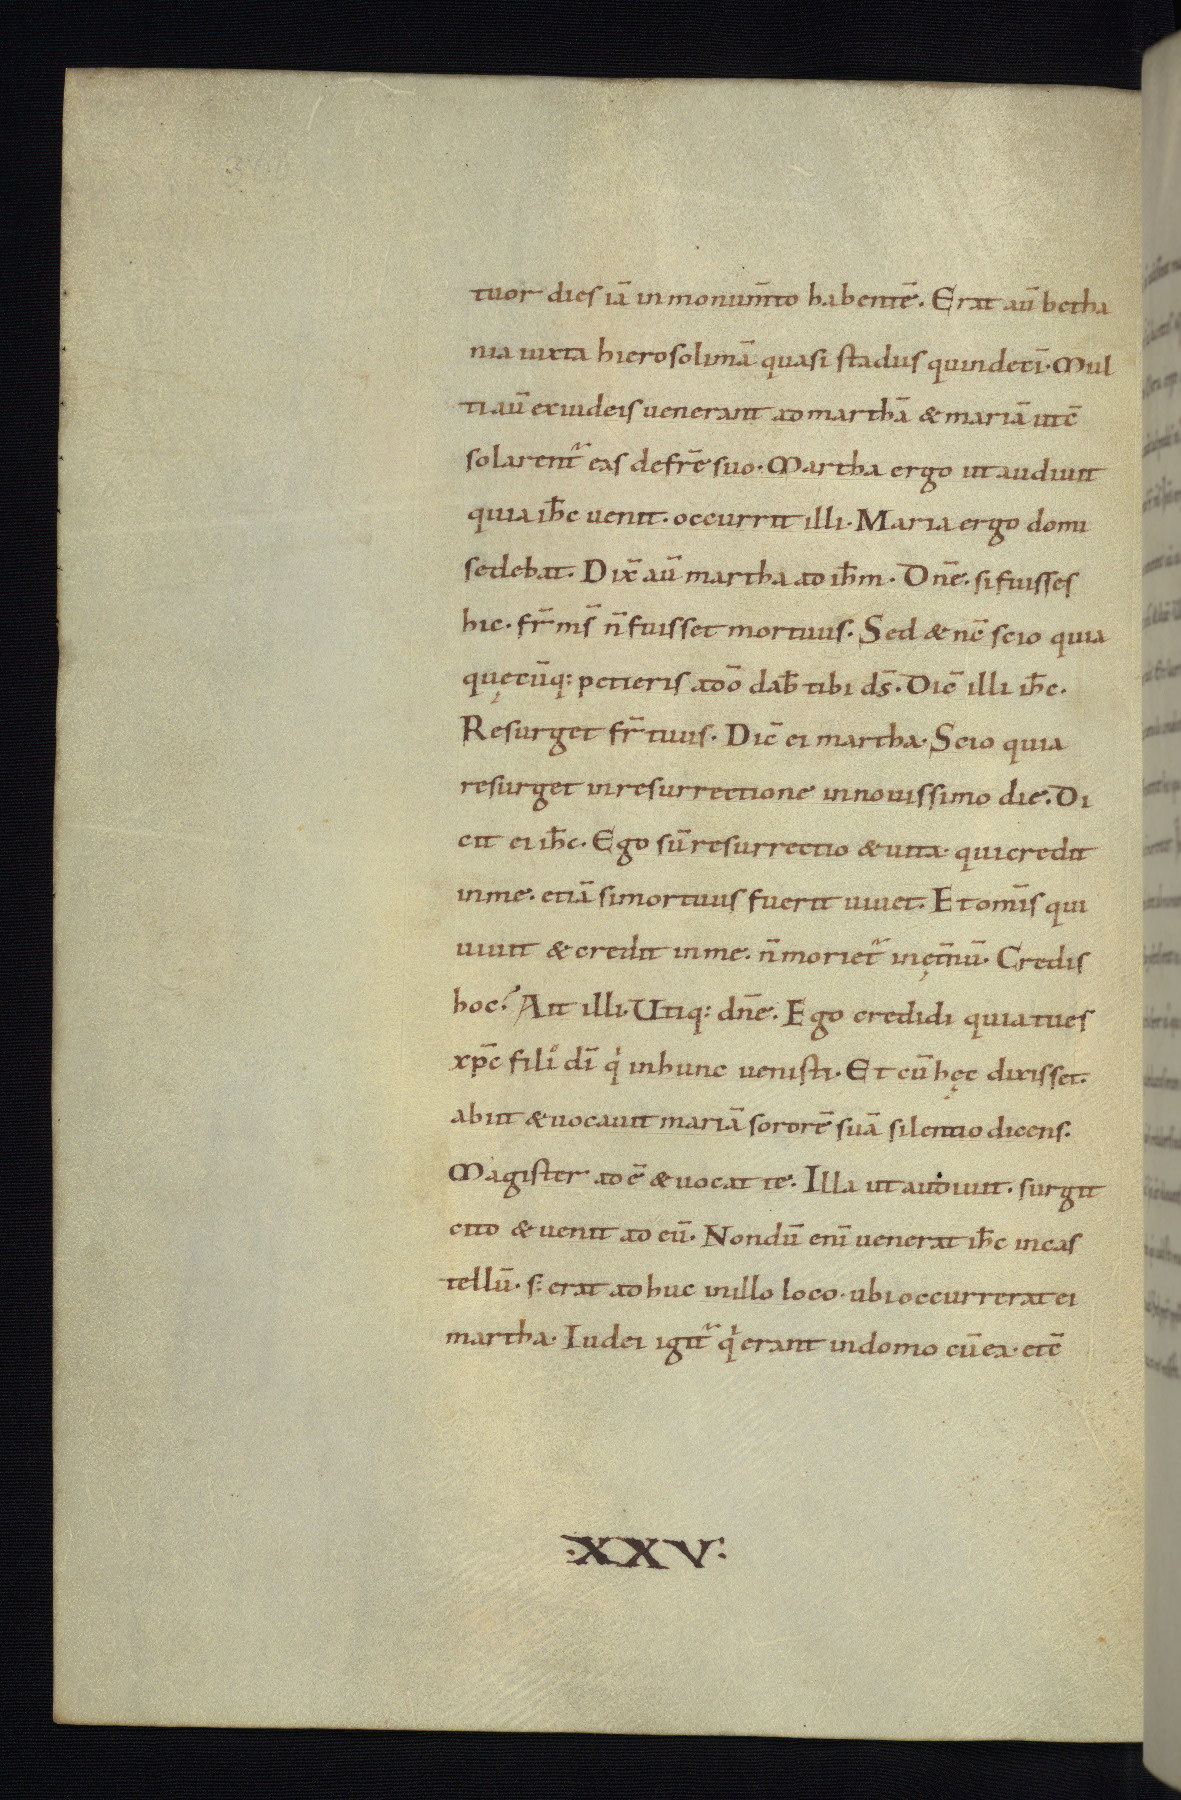 tuor dies iā in monum̄to habentē. Erat aū betha
nia iuxta hierosolimā quasi stadiis quindecī. Mul
ti aū ex iudeis uenerant ad marthā & mariā ut c̄
solarent᷑ eas de fr̄e suo. Martha ergo ut audiuit
quia ih̄c uenit. occurrit illi. Maria ergo domi
sedebat. Dix̄ aū martha ad ih̄m. Dn̄e. si fuisses
hic. fr̄ ms̄ n̄ fuisset mortuus. Sed & nc̄ scio quia
quęcūq: petieris a dō dab̄ tibi ds̄. Dic̄ illi ih̄c.
Resurget fr̄ tuus. Dic̄ ei martha. Scio quia
resurget in resurrectione in nouissimo die. Di
cit ei ih̄c. Ego sū resurrectio & uita. qui credit
in me. etiā si mortuus fuerit uiuet. Et omīs qui
uiuit & credit in me. n̄ moriet᷑ in ęt̄nū. Credis
hoc? Ait illi. Utiq: dn̄e. Ego credidi quia tu es
xp̄c filiꝰ dī qͥ in hunc uenisti. Et cū hęc dixisset.
abiit & uocauit mariā sororē suā silentio dicens.
Magister adē & uocat te. Illa ut audiuit. surgit
cito & uenit ad eū. Nondū enī uenerat ih̄c in cas
tellū. s: erat adhuc in illo loco. ubi occurrerat ei
martha. Iudei igit᷑ qͥ erant in domo cū ea. et c̄
·XXV·